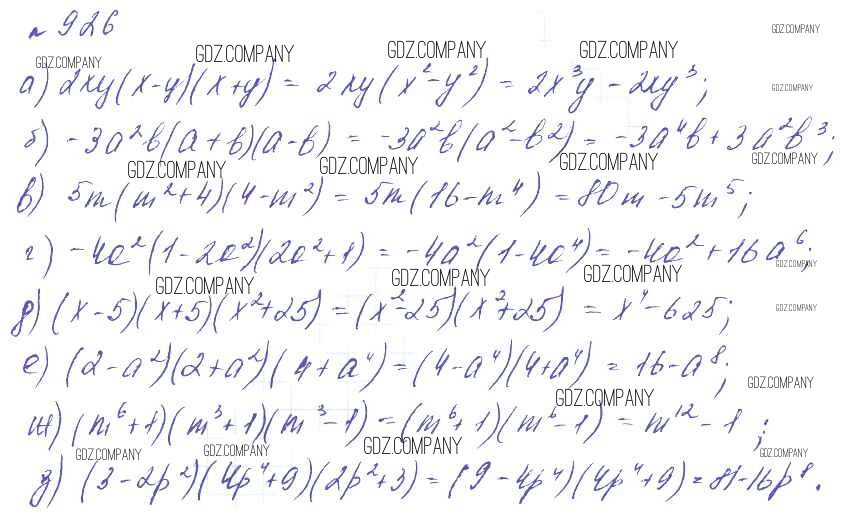 № 926
GDZ.COMPANY GDZ.COMPANY GDZ.COMPANY GDZ.COMPANY GDZ.COMPANY
а) 2xy(x-y)(x+y) = 2xy(x²-y²) = 2x³y - 2xy³; GDZ.COMPANY
б) -3a²b(a+b)(a-b) = -3a²b(a²-b²) = -3a⁴b + 3a²b³;
GDZ.COMPANY GDZ.COMPANY GDZ.COMPANY GDZ.COMPANY
в) 5m(m²+4)(4-m²) = 5m(16-m⁴) = 80m - 5m⁵;
г) -4a²(1-2a²)(2a²+1) = -4a²(1-4a⁴) = -4a² + 16a⁶;
GDZ.COMPANY GDZ.COMPANY GDZ.COMPANY GDZ.COMPANY
д) (x-5)(x+5)(x²+25) = (x²-25)(x²+25) = x⁴-625; GDZ.COMPANY
е) (2-a²)(2+a²)(4+a⁴) = (4-a⁴)(4+a⁴) = 16-a⁸;
GDZ.COMPANY GDZ.COMPANY
ж) (m⁶+1)(m³+1)(m³-1) = (m⁶+1)(m⁶-1) = m¹²-1;
GDZ.COMPANY GDZ.COMPANY GDZ.COMPANY GDZ.COMPANY
з) (3-2p²)(4p⁴+9)(2p²+3) = (9-4p⁴)(4p⁴+9) = 81-16p⁸.